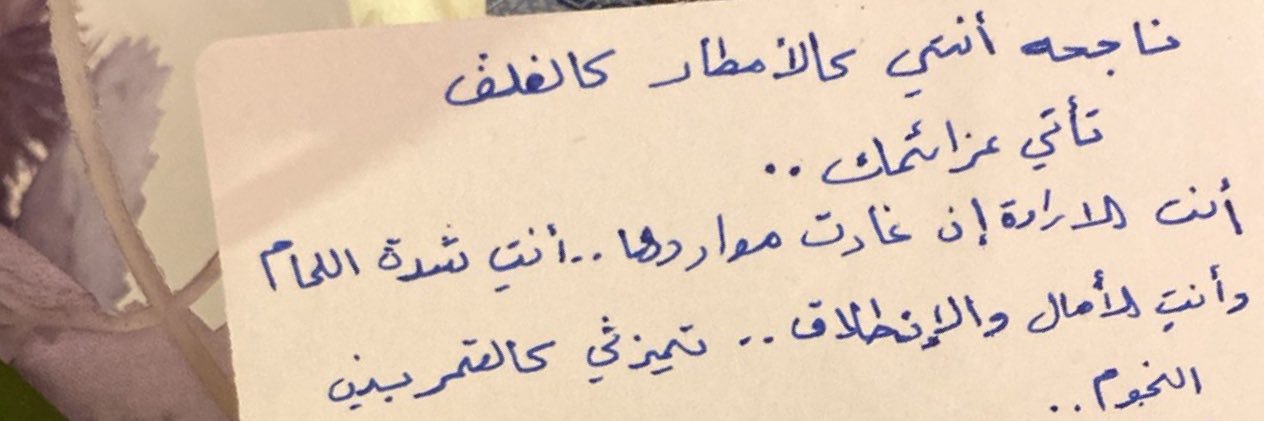 ناجحه أنتي كالأمطار كالغلف
تأتي عزائمك ..
أنت الارادة إن غارت مواردها .. أنتِ شدة اللحام
وأنتِ الأمال والإنطلاق .. تميزتي كالقمر بين
النجوم ..